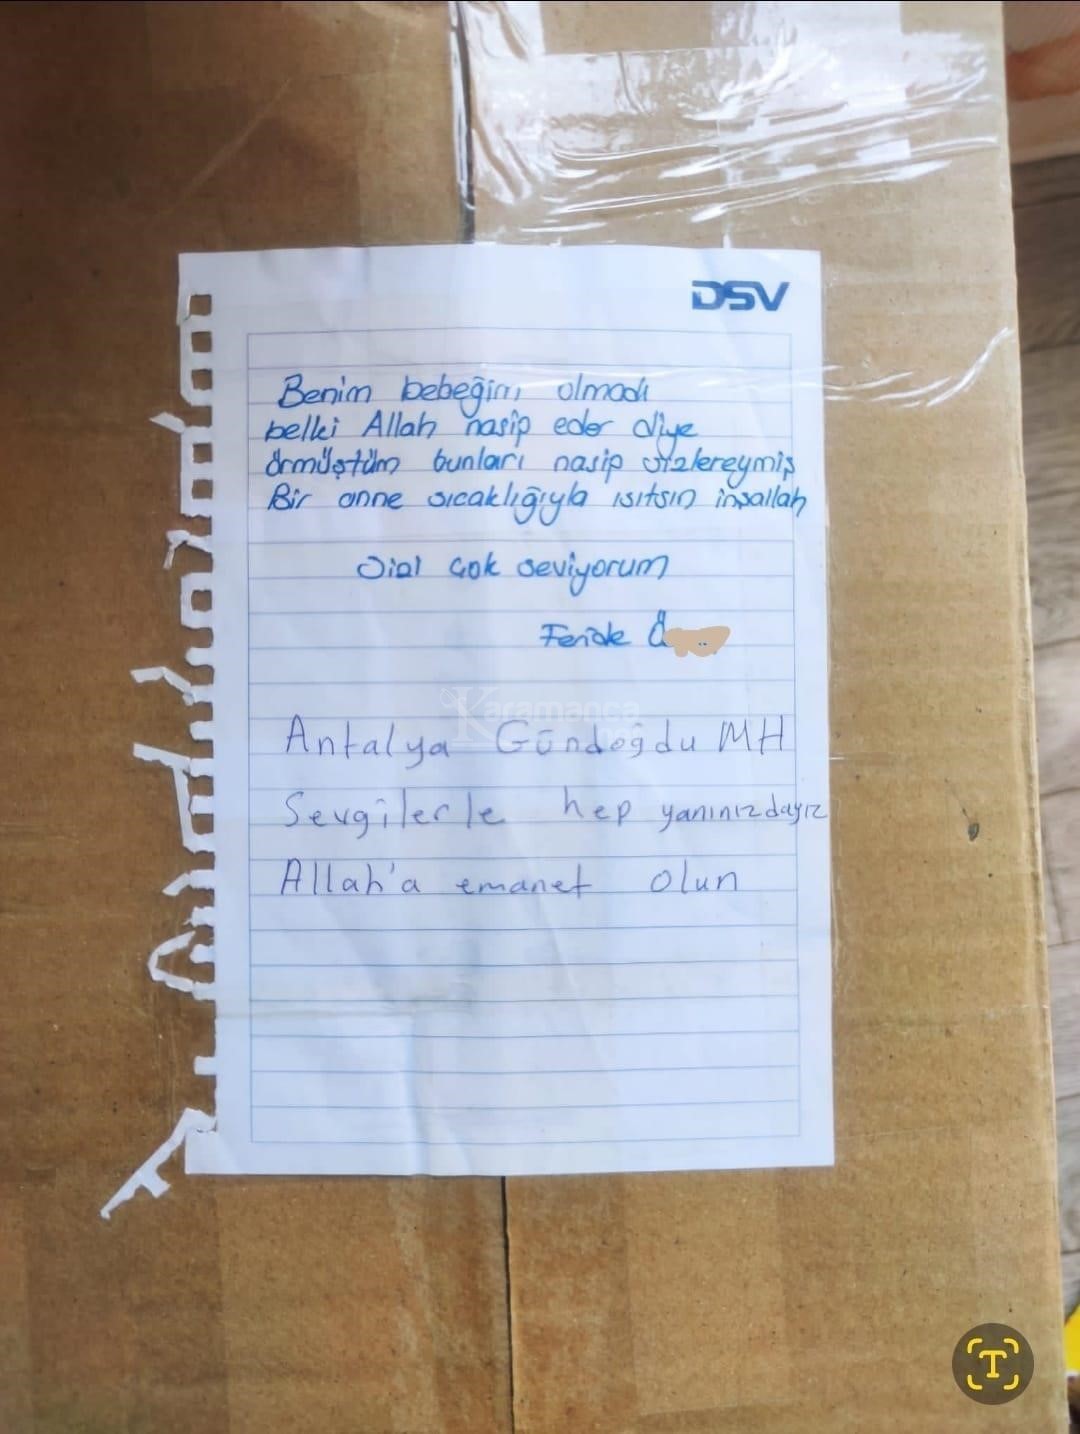 DSV
Benim bebeğim olmadı
belki Allah nasip eder diye
örmüştüm bunları nasip sizlereymiş
Bir anne sıcaklığıyla ısıtsın inşallah
Sizi çok seviyorum
Feride Ö
Karamanca
Antalya Gündoğdu MH
Sevgilerle hep yanınızdayız
Allah'a emanet olun